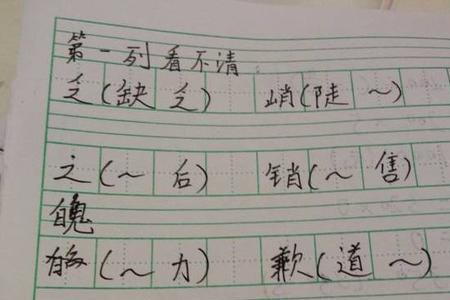 第一列看不清.
乏(缺乏) 峭(陡～)
之(～后) 销(～售)
魄
(～力) 歉(道～)